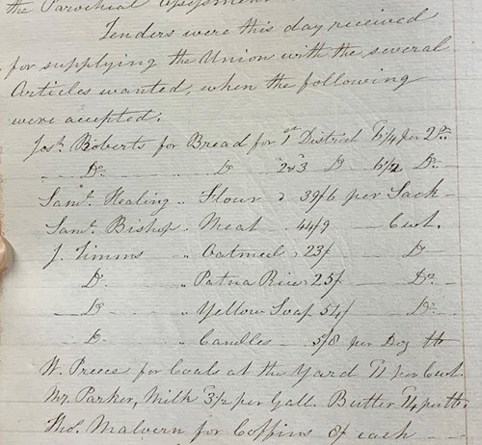 the Parochial
Tenders were this day received
for supplying the Union with the several
Articles wanted, when the following
were accepted.
Josh. Roberts for Bread for 1st District per
Do. Do. 2 & 3 Do. Do.
Saml. Healing „ Flour 39/6 per Sack
Saml. Bishop „ Meat 44/9 Cwt.
J. Timms „ Oatmeal 23/ Do.
Do. „ Patna Rice 25/ Do.
Do. „ Yellow Soap 54/ Do.
Do. „ Candles 5/8 per Doz lb
W. Preece for Coals at the Yard per Cwt.
Mr. Parker, Milk per Gall. Butter per lb.
Thos. Malvern for Coffins of each